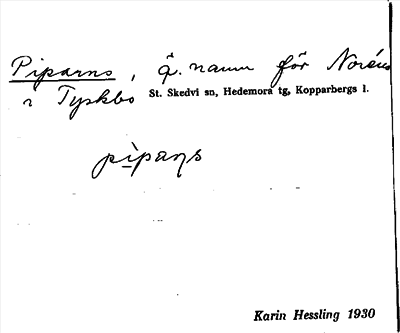 Piparns, ä. namn för Noréns
i Tyskbo St. Skedvi sn, Hedemora tg, Kopparbergs l.
pipaɳs
Karin Hessling 1930